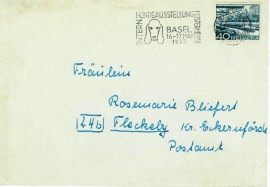 INTERN. HUNDEAUSSTELLUNG
BASEL
16-17. MAI
1953
40
Fräulein
Rosemarie Bliefert
24b Fleckeby Kr. Eckernförde
Postamt